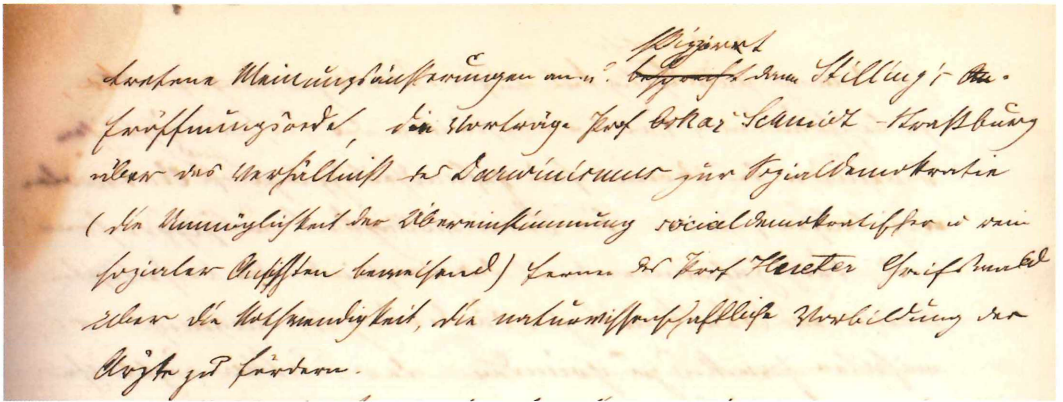 skizzirt
tretene Meinungsäußerungen an u. bespricht dann Stilling's An-
Eröffnungsrede, die Vorträge Prof Oskar Schmidt - Straßburg
über das Verhältniß des Darwinismus zur Sozialdemokratie
(die Unmöglichkeit der Übereinstimmung socialdemokratischer u rein
sozialer Ansichten beweisend) ferner des Prof Hueter Greifswald
über die Nothwendigkeit, die naturwissenschaftliche Vorbildung der
Ärzte zu fördern.